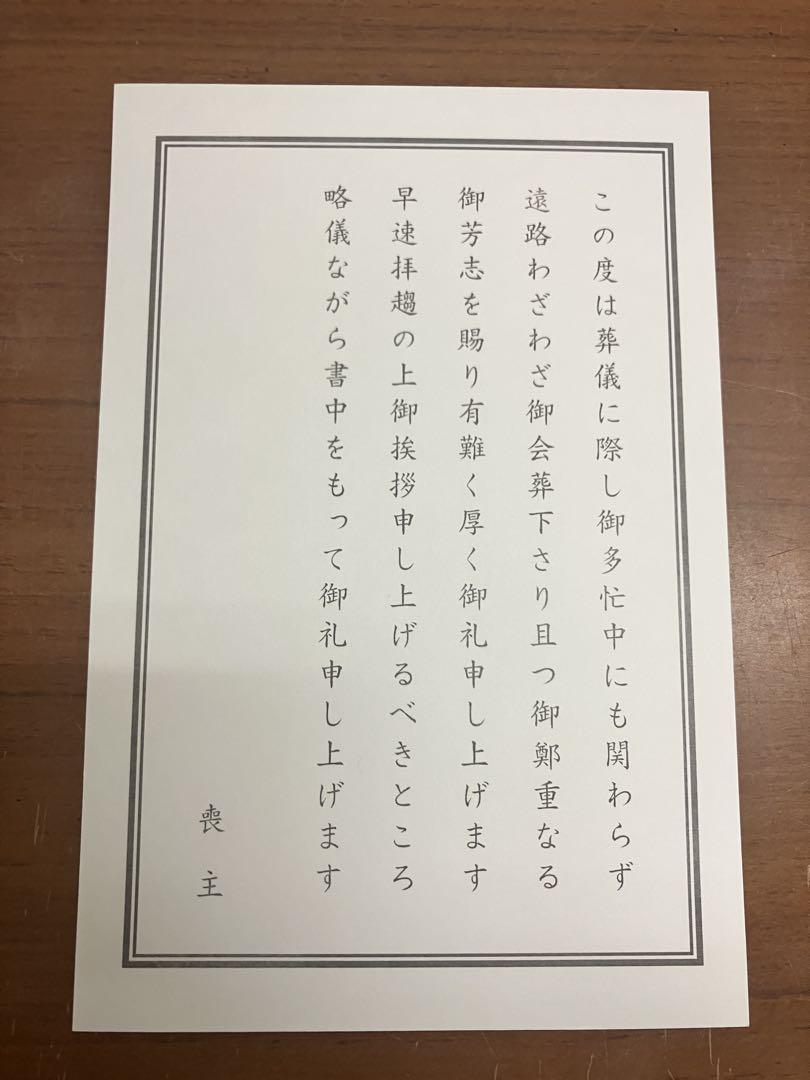 この度は葬儀に際し御多忙中にも関わらず
遠路わざわざ御会葬下さり且つ御鄭重なる
御芳志を賜り有難く厚く御礼申し上げます
早速拝趨の上御挨拶申し上げるべきところ
略儀ながら書中をもって御礼申し上げます
喪主